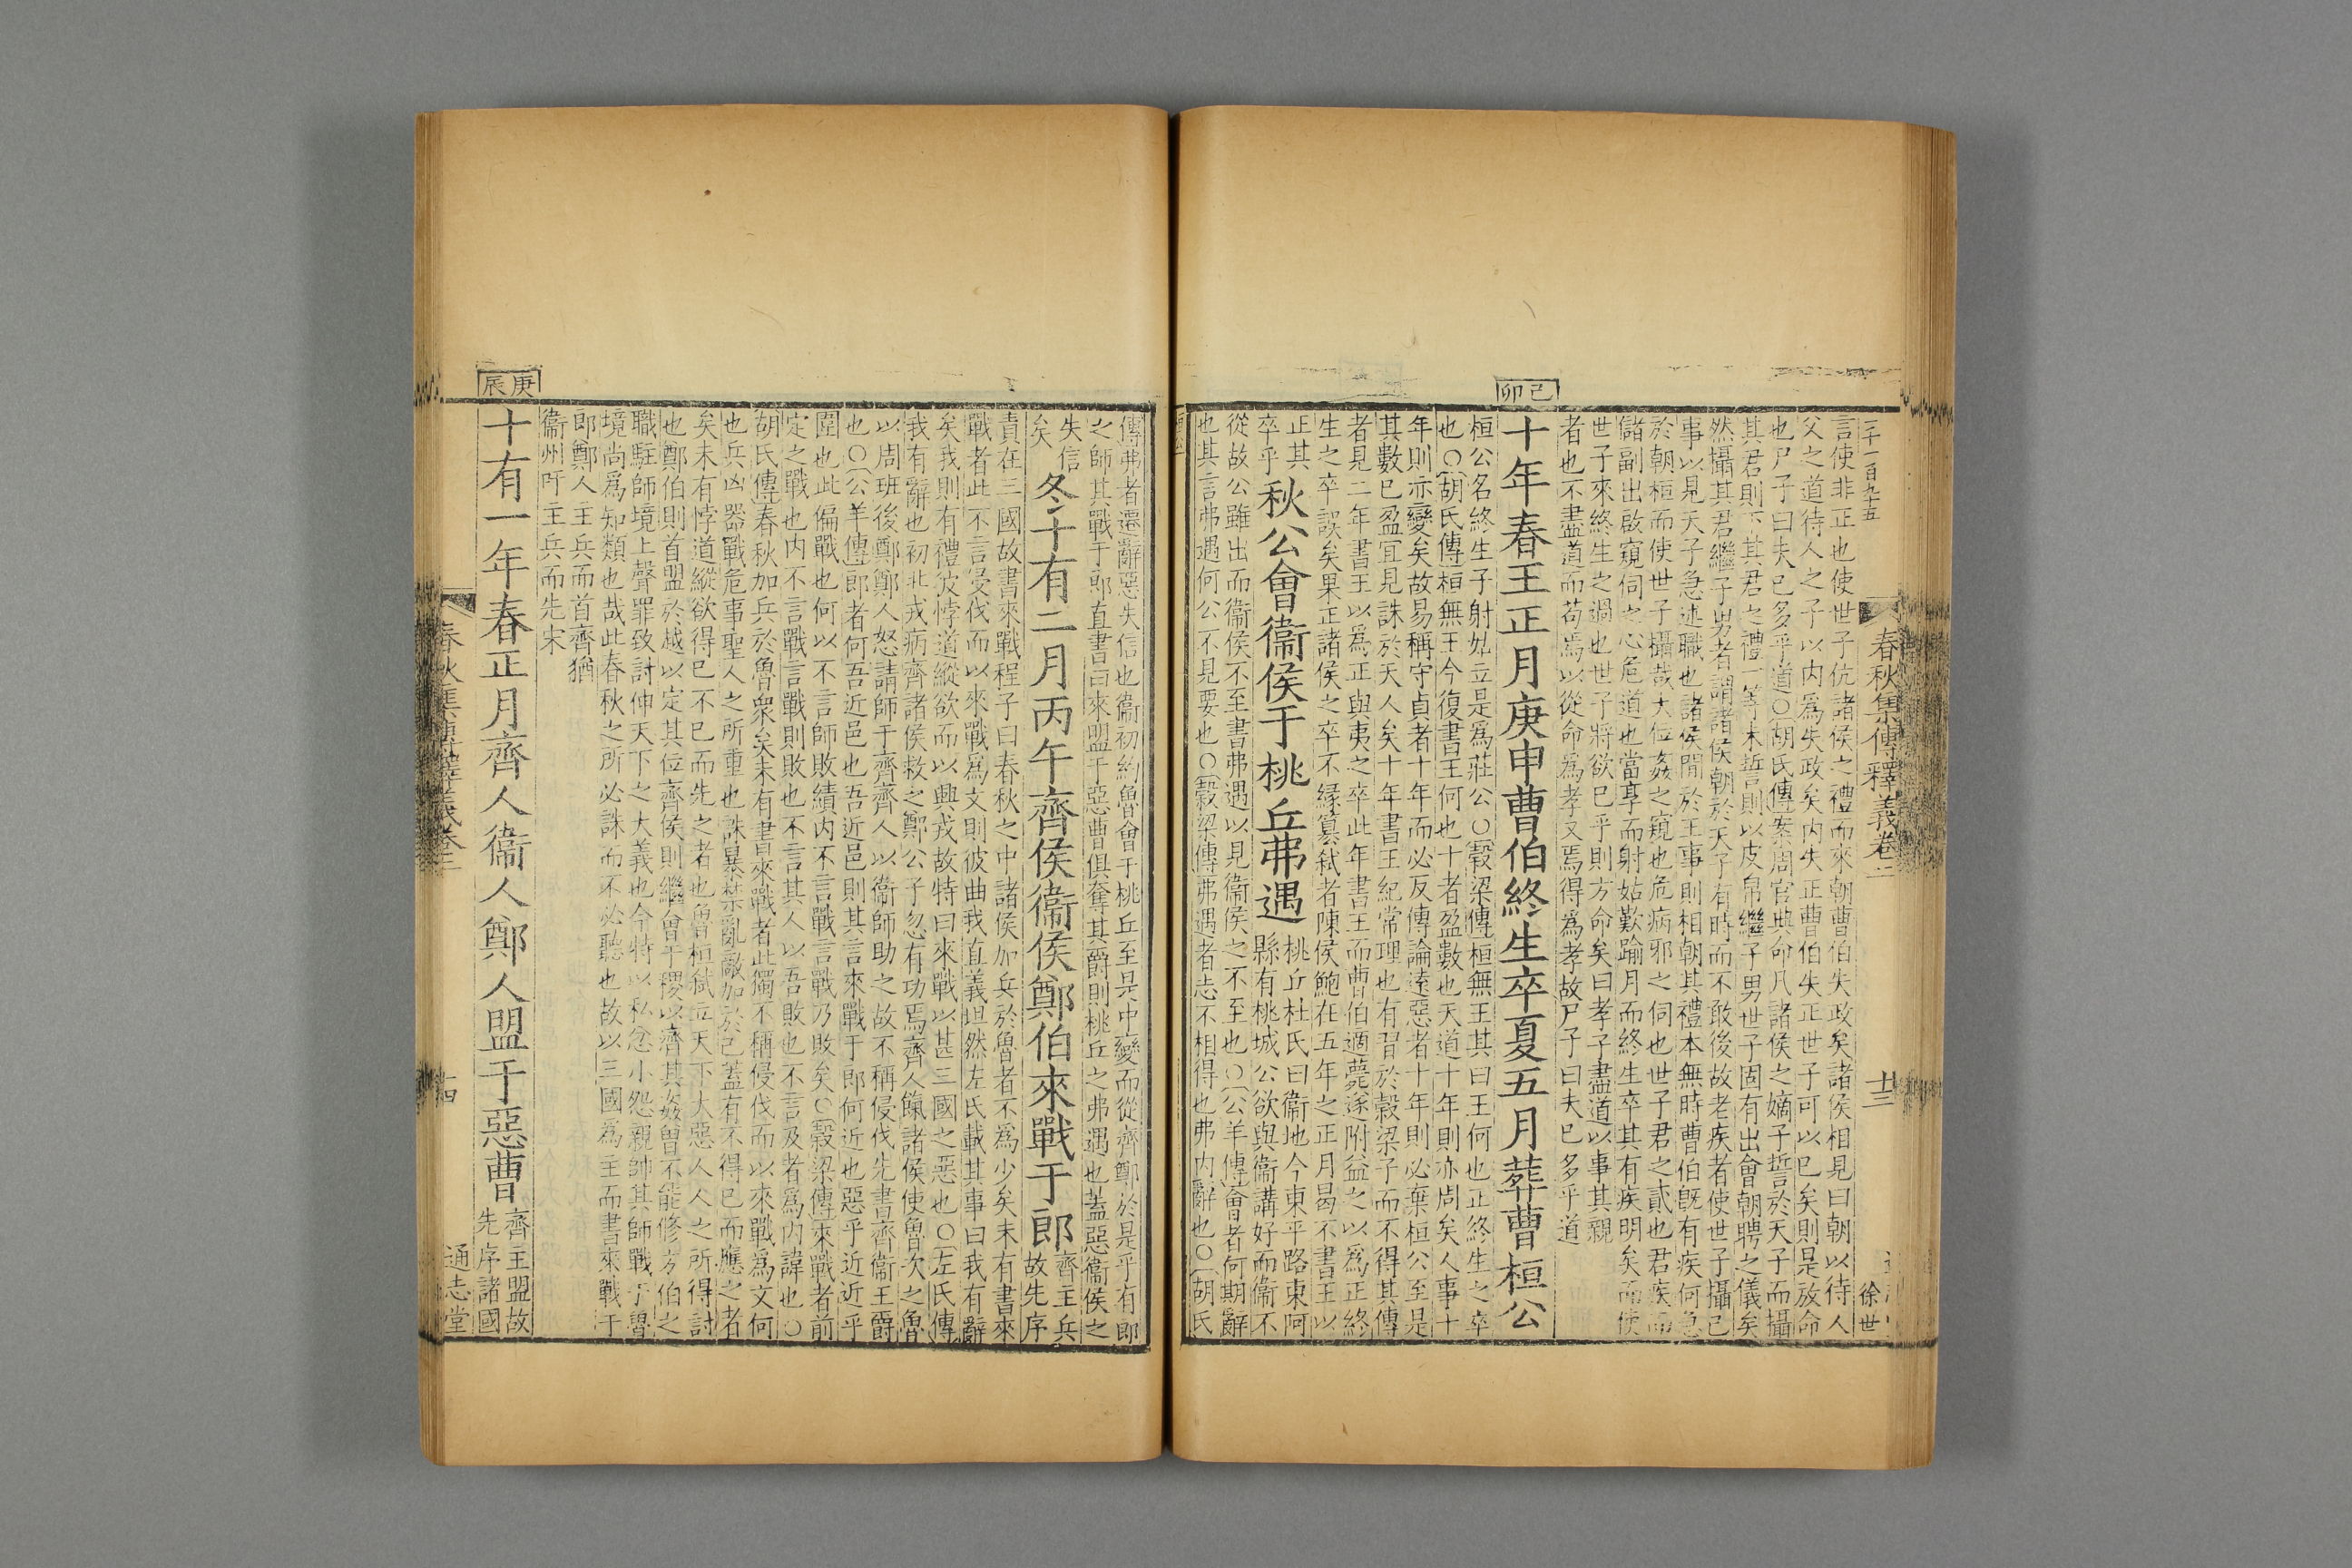 二千一百九十五
春秋集傳釋義卷二
十三
徐世
言使非正也使世子伉諸侯之禮而來朝曹伯失政矣諸侯相見曰朝以待人
父之道待人之子以内為失政矣内失正曹伯失正世子可以已矣則是放命
也尸子曰夫已多乎道○胡氏傳案周官典命凡諸侯之嫡子誓於天子而攝
其君則下其君之禮一等未誓則以皮帛繼子男世子固有出會朝聘之儀矣
然攝其君繼子男者謂諸侯朝於天子有時而不敢後故老疾者使世子攝已
事以見天子急述職也諸侯閒於王事則相朝其禮本無時曹伯旣有疾何急
於朝桓而使世子攝哉大位姦之窺也危病邪之伺也世子君之貳也君疾而
儲副出啟窺伺之心危道也當享而射姑歎踰月而終生卒其有疾明矣而使
世子來終生之過也世子將欲已乎則方命矣曰孝子盡道以事其親
者也不盡道而苟焉以從命爲孝又焉得爲孝故尸子曰夫已多乎道
己卯
十年春王正月庚申曹伯終生卒夏五月葬曹桓公
桓公名終生子射姑立是爲莊公○穀梁傳桓無王其曰王何也正終生之卒
也○胡氏傳桓無王今復書王何也十者盈數也天道十年則亦周矣人事十
年則亦變矣故易稱守貞者十年而必反傳論遠惡者十年則必棄桓公至是
其數已盈宜見誅於天人矣十年書王紀常理也有習於穀梁子而不得其傳
者見二年書王以爲正與夷之卒此年書王而曹伯適薨遂附益之以爲正終
生之卒誤矣果正諸侯之卒不緣簒弑者陳侯鮑在五年之正月曷不書王以
正其
卒乎
秋公會衞侯于桃丘弗遇
桃丘杜氏曰衞地今東平路東阿
縣有桃城公欲與衞講好而衞不
從故公雖出而衞侯不至書弗遇以見衞侯之不至也○公羊傳會者何期辭
也其言弗遇何公不見要也○穀梁傳弗遇者志不相得也弗内辭也○胡氏
傳弗者遷辭惡失信也衞初約魯會于桃丘至是中變而從齊鄭於是乎有郎
之師其戰于郎直書曰來盟于惡曹俱奪其爵則桃丘之弗遇也蓋惡衞侯之
失信
矣
冬十有二月丙午齊侯衞侯鄭伯來戰于郎
齊主兵
故先序
責在三國故書來戰程子曰春秋之中諸侯加兵於魯者不爲少矣未有書來
戰者此不言侵伐而以來戰爲文則彼曲我直義坦然左氏載其事曰我有辭
矣我則有禮彼悖道縱欲而以興戎故特曰來戰以甚三國之惡也○左氏傳
我有辭也初北戎病齊諸侯救之鄭公子忽有功焉齊人餼諸侯使魯次之魯
以周班後鄭鄭人怒請師于齊齊人以衞師助之故不稱侵伐先書齊衞王爵
也○公羊傳郎者何吾近邑也吾近邑則其言來戰于郎何近也惡乎近近乎
圍也此偏戰也何以不言師敗績内不言戰言戰乃敗矣○穀梁傳來戰者前
定之戰也内不言戰言戰則敗也不言其人以吾敗也不言及者爲内諱也○
胡氏傳春秋加兵於魯衆矣未有書來戰者此獨不稱侵伐而以來戰爲文何
也兵凶器戰危事聖人之所重也誅暴禁亂敵加於己蓋有不得已而應之者
矣未有悖道縱欲得已不已而先之者也魯桓弑立天下大惡人人之所得討
也鄭伯則首盟於越以定其位齊侯則繼會于稷以濟其姦曾不能修方伯之
職駐師境上聲罪致討伸天下之大義也今特以私忿小怨親帥其師戰于魯
境尚爲知類也哉此春秋之所必誅而不必聽也故以三國爲主而書來戰于
郎鄭人主兵而首齊猶
衞州吁主兵而先宋
庚辰
十有一年春正月齊人衞人鄭人盟于惡曹
齊主盟故
先序諸國
春秋集傳釋義卷二
十四
通志堂